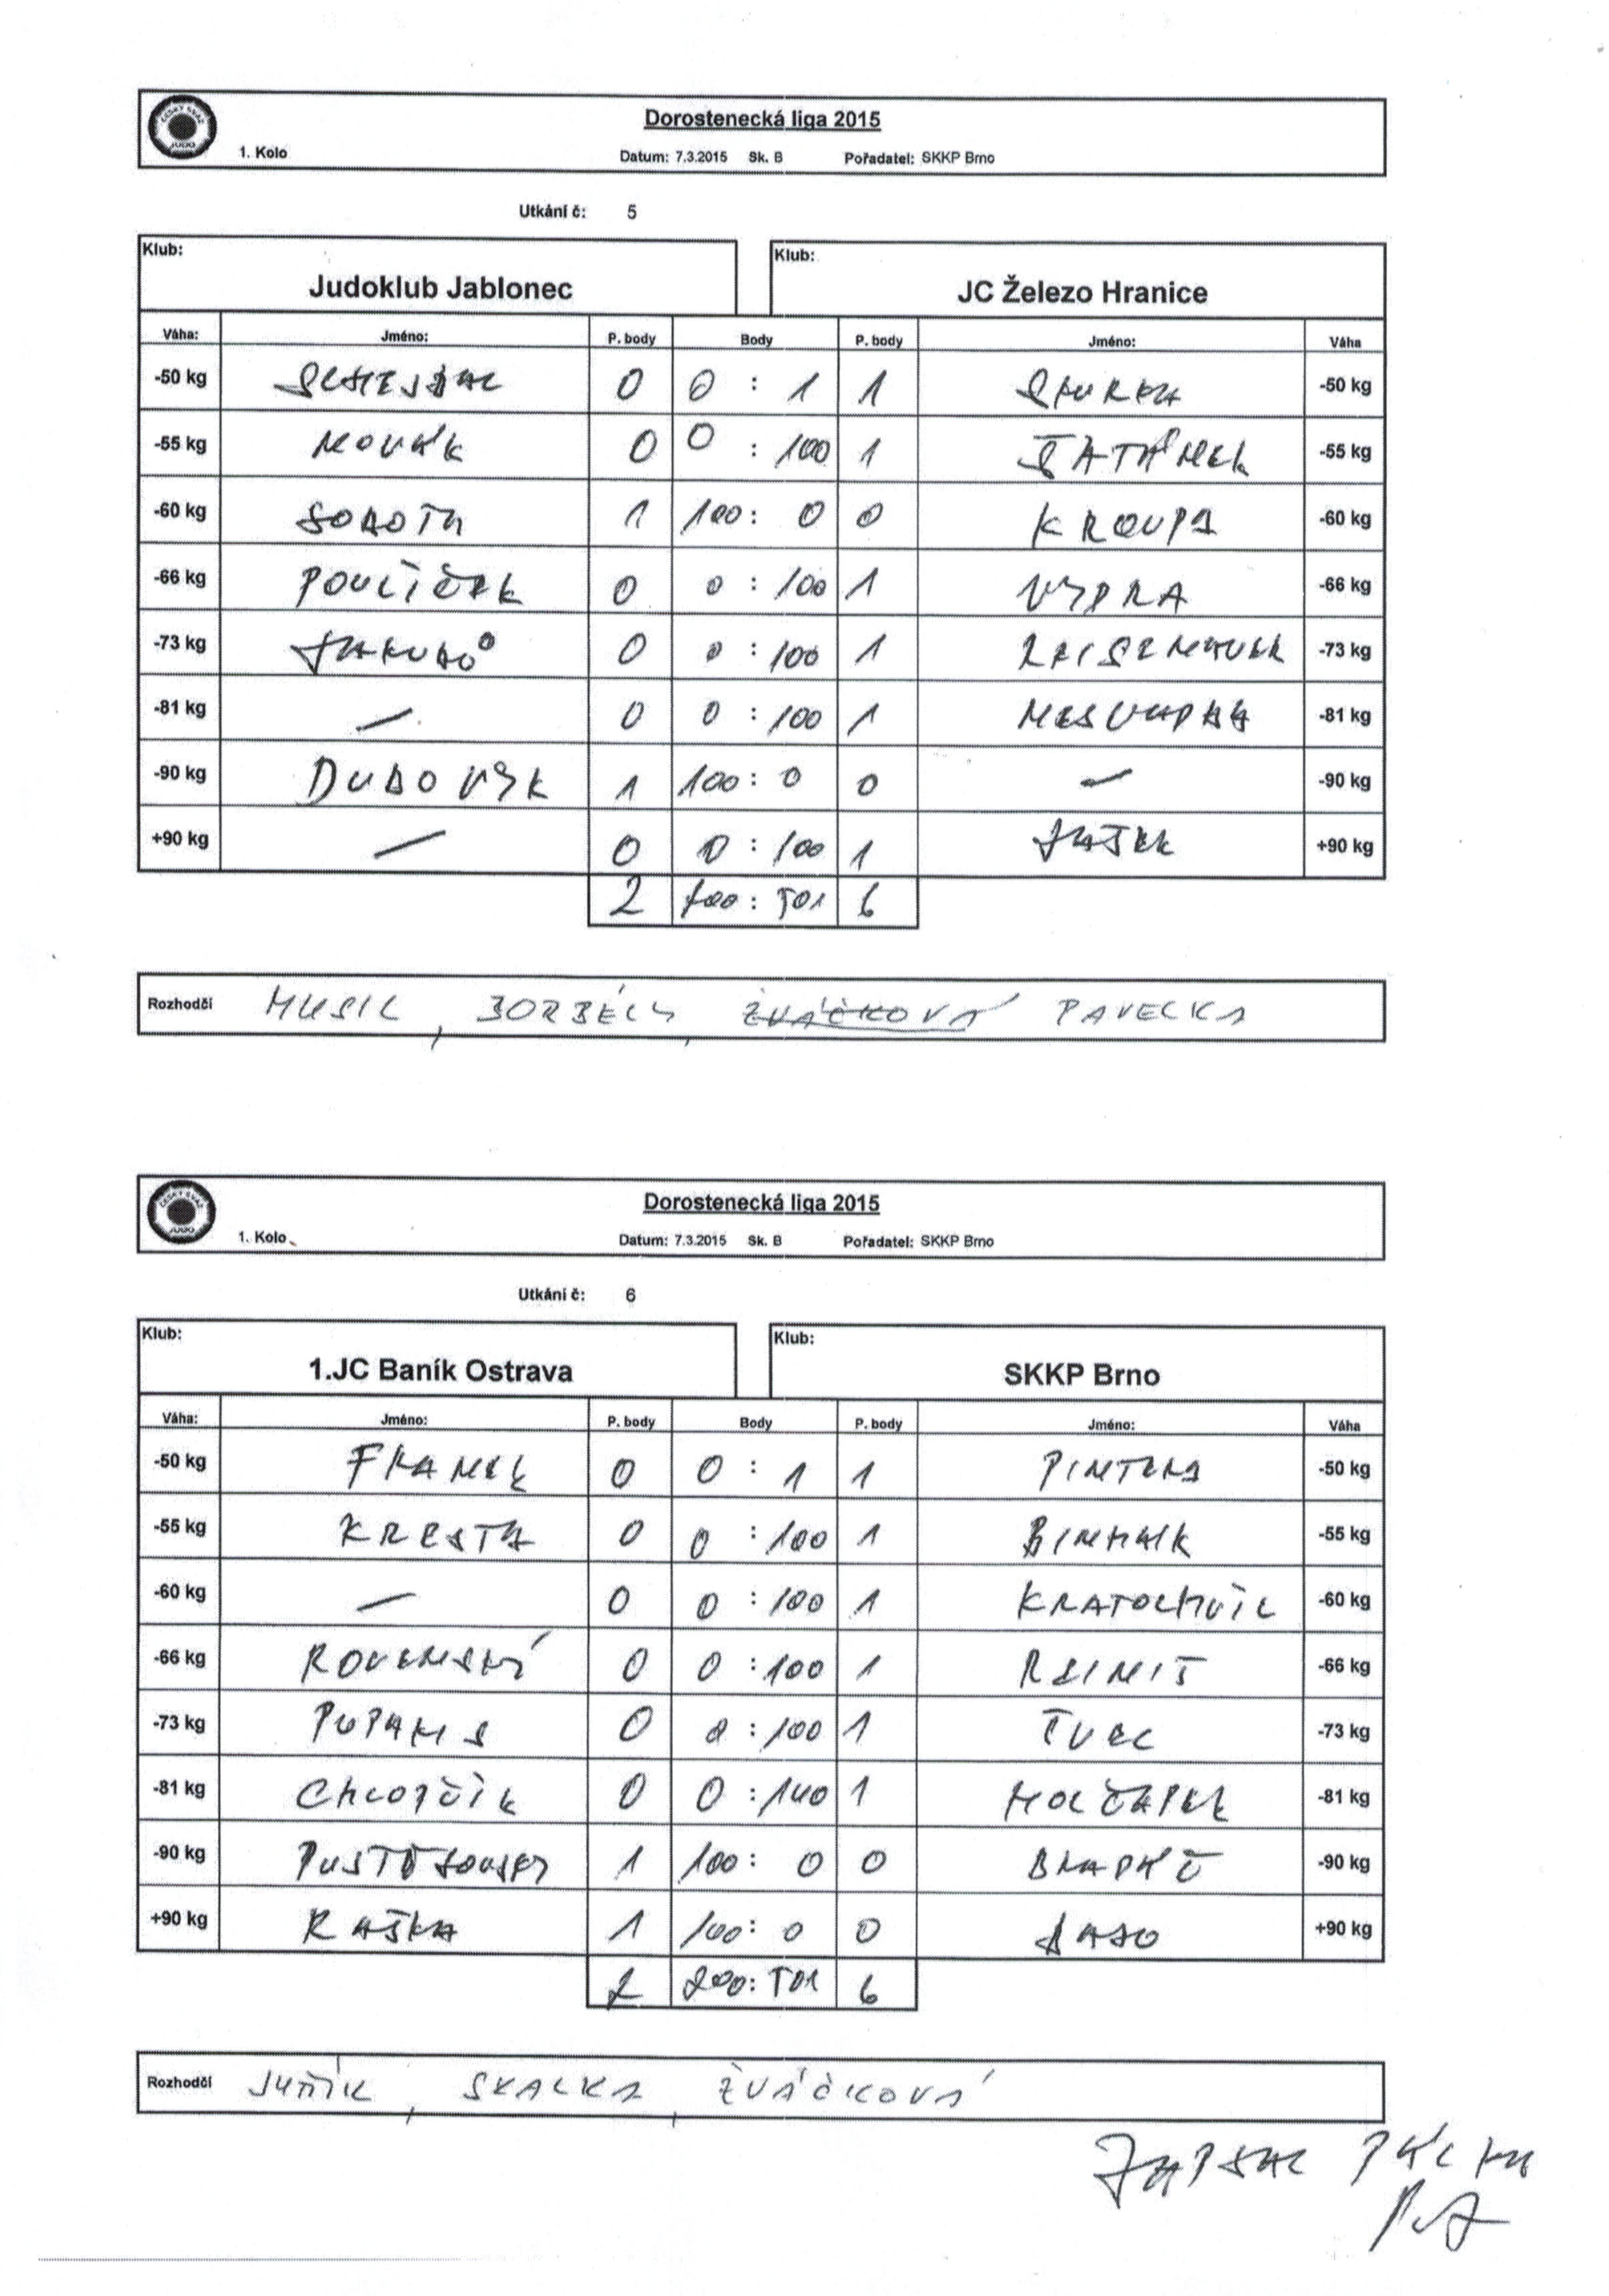 Dorostenecká liga 2015
1. Kolo Datum: 7.3.2015 Sk. B Pořadatel: SKKP Brno
Utkání č: 5
Klub: Klub:
Judoklub Jablonec JC Železo Hranice
Váha: Jméno: P. body Body P. body Jméno: Váha
-50 kg 0 0 : 1 1 -50 kg
-55 kg NOVÁK 0 0 : 100 1 ŠATÁNEK -55 kg
-60 kg SOBOTA 1 100 : 0 0 KROUPA -60 kg
-66 kg POULÍČEK 0 0 : 100 1 VYDRA -66 kg
-73 kg JAKUBŮ 0 0 : 100 1 -73 kg
-81 kg — 0 0 : 100 1 -81 kg
-90 kg DUBOVÝK 1 100 : 0 0 — -90 kg
+90 kg — 0 0 : 100 1 JAŠEK +90 kg
2 : 501 6
Rozhodčí MUSIL, BORBÉLY, ŽVÁČKOVÁ PAVELKA
Dorostenecká liga 2015
1. Kolo Datum: 7.3.2015 Sk. B Pořadatel: SKKP Brno
Utkání č: 6
Klub: Klub:
1.JC Baník Ostrava SKKP Brno
Váha: Jméno: P. body Body P. body Jméno: Váha
-50 kg FRANEK 0 0 : 1 1 PINTERA -50 kg
-55 kg KRESTA 0 0 : 100 1 BINHAK -55 kg
-60 kg — 0 0 : 100 1 KRATOCHVÍL -60 kg
-66 kg ROVENSKÝ 0 0 : 100 1 REINIŠ -66 kg
-73 kg 0 0 : 100 1 ŠVEC -73 kg
-81 kg CHLOPČÍK 0 0 : 100 1 HOLČAPEK -81 kg
-90 kg 1 100 : 0 0 -90 kg
+90 kg RAŠKA 1 100 : 0 0 SABO +90 kg
2 200 : 501 6
Rozhodčí JUŘÍK, SKALKA, ŽVÁČKOVÁ
ZAPSAL